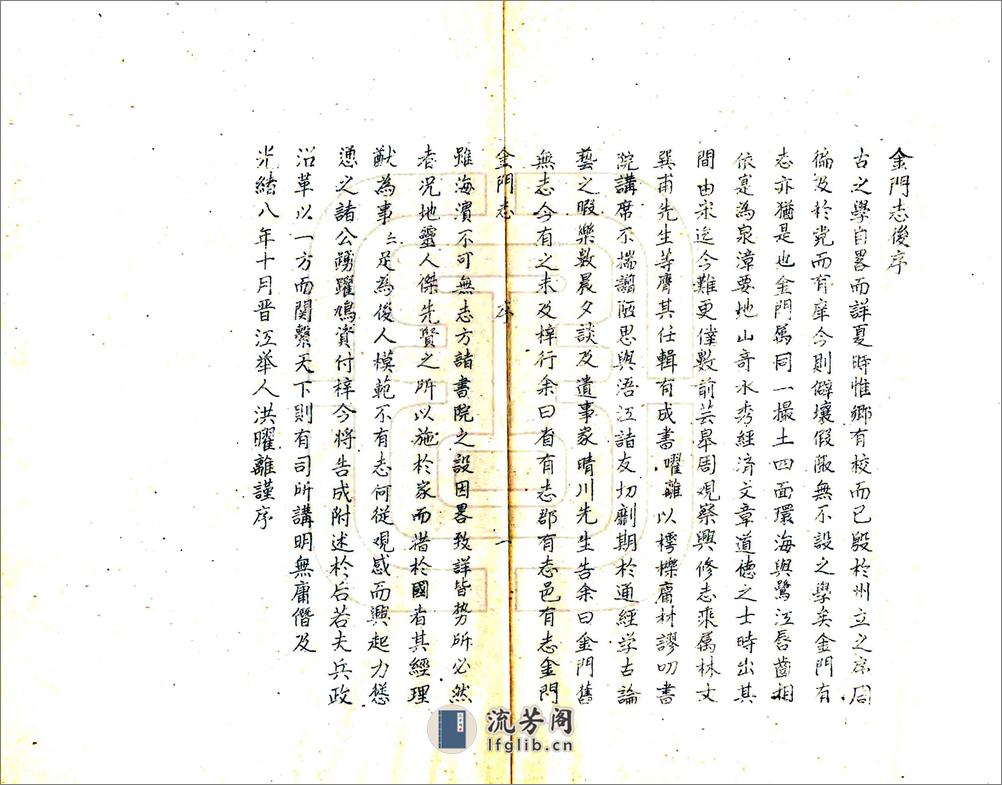 金門志後序
古之學自畧而詳夏時惟鄉有校而已殷於州立之序周
徧設於党而有庠今則僻壤假陬無不設之學矣金門有
志亦猶是也金門属同一撮土四面環海與鷺江唇齒相
依寔為泉漳要地山奇水秀經済文章道徳之士時出其
間由宋迄今難更僕數前芸皋周观察興修志乘属林文
巽甫先生等膺其任輯有成書曜離以樗櫟庸材謬叨書
院講席不揣譾陋思與浯江諸友切劘期於通經学古論
藝之暇樂數晨夕談及遺事家晴川先生告余曰金門舊
無志今有之未及梓行余曰省有志郡有志邑有志金門
金門志 序 一
雖海濱不可無志方諸書院之設因畧致詳皆势所必然
者况地靈人傑先賢之所以施於家而措於國者其經理
猷為事二足為後人模範不有志何従观感而興起力慫
慂之諸公踴躍鳩資付梓今將告成附述於后若夫兵政
沿革以一方而関繫天下則有司所講明無庸僭及
光緒八年十月晋江举人洪曜離謹序
流芳阁
lfglib.cn